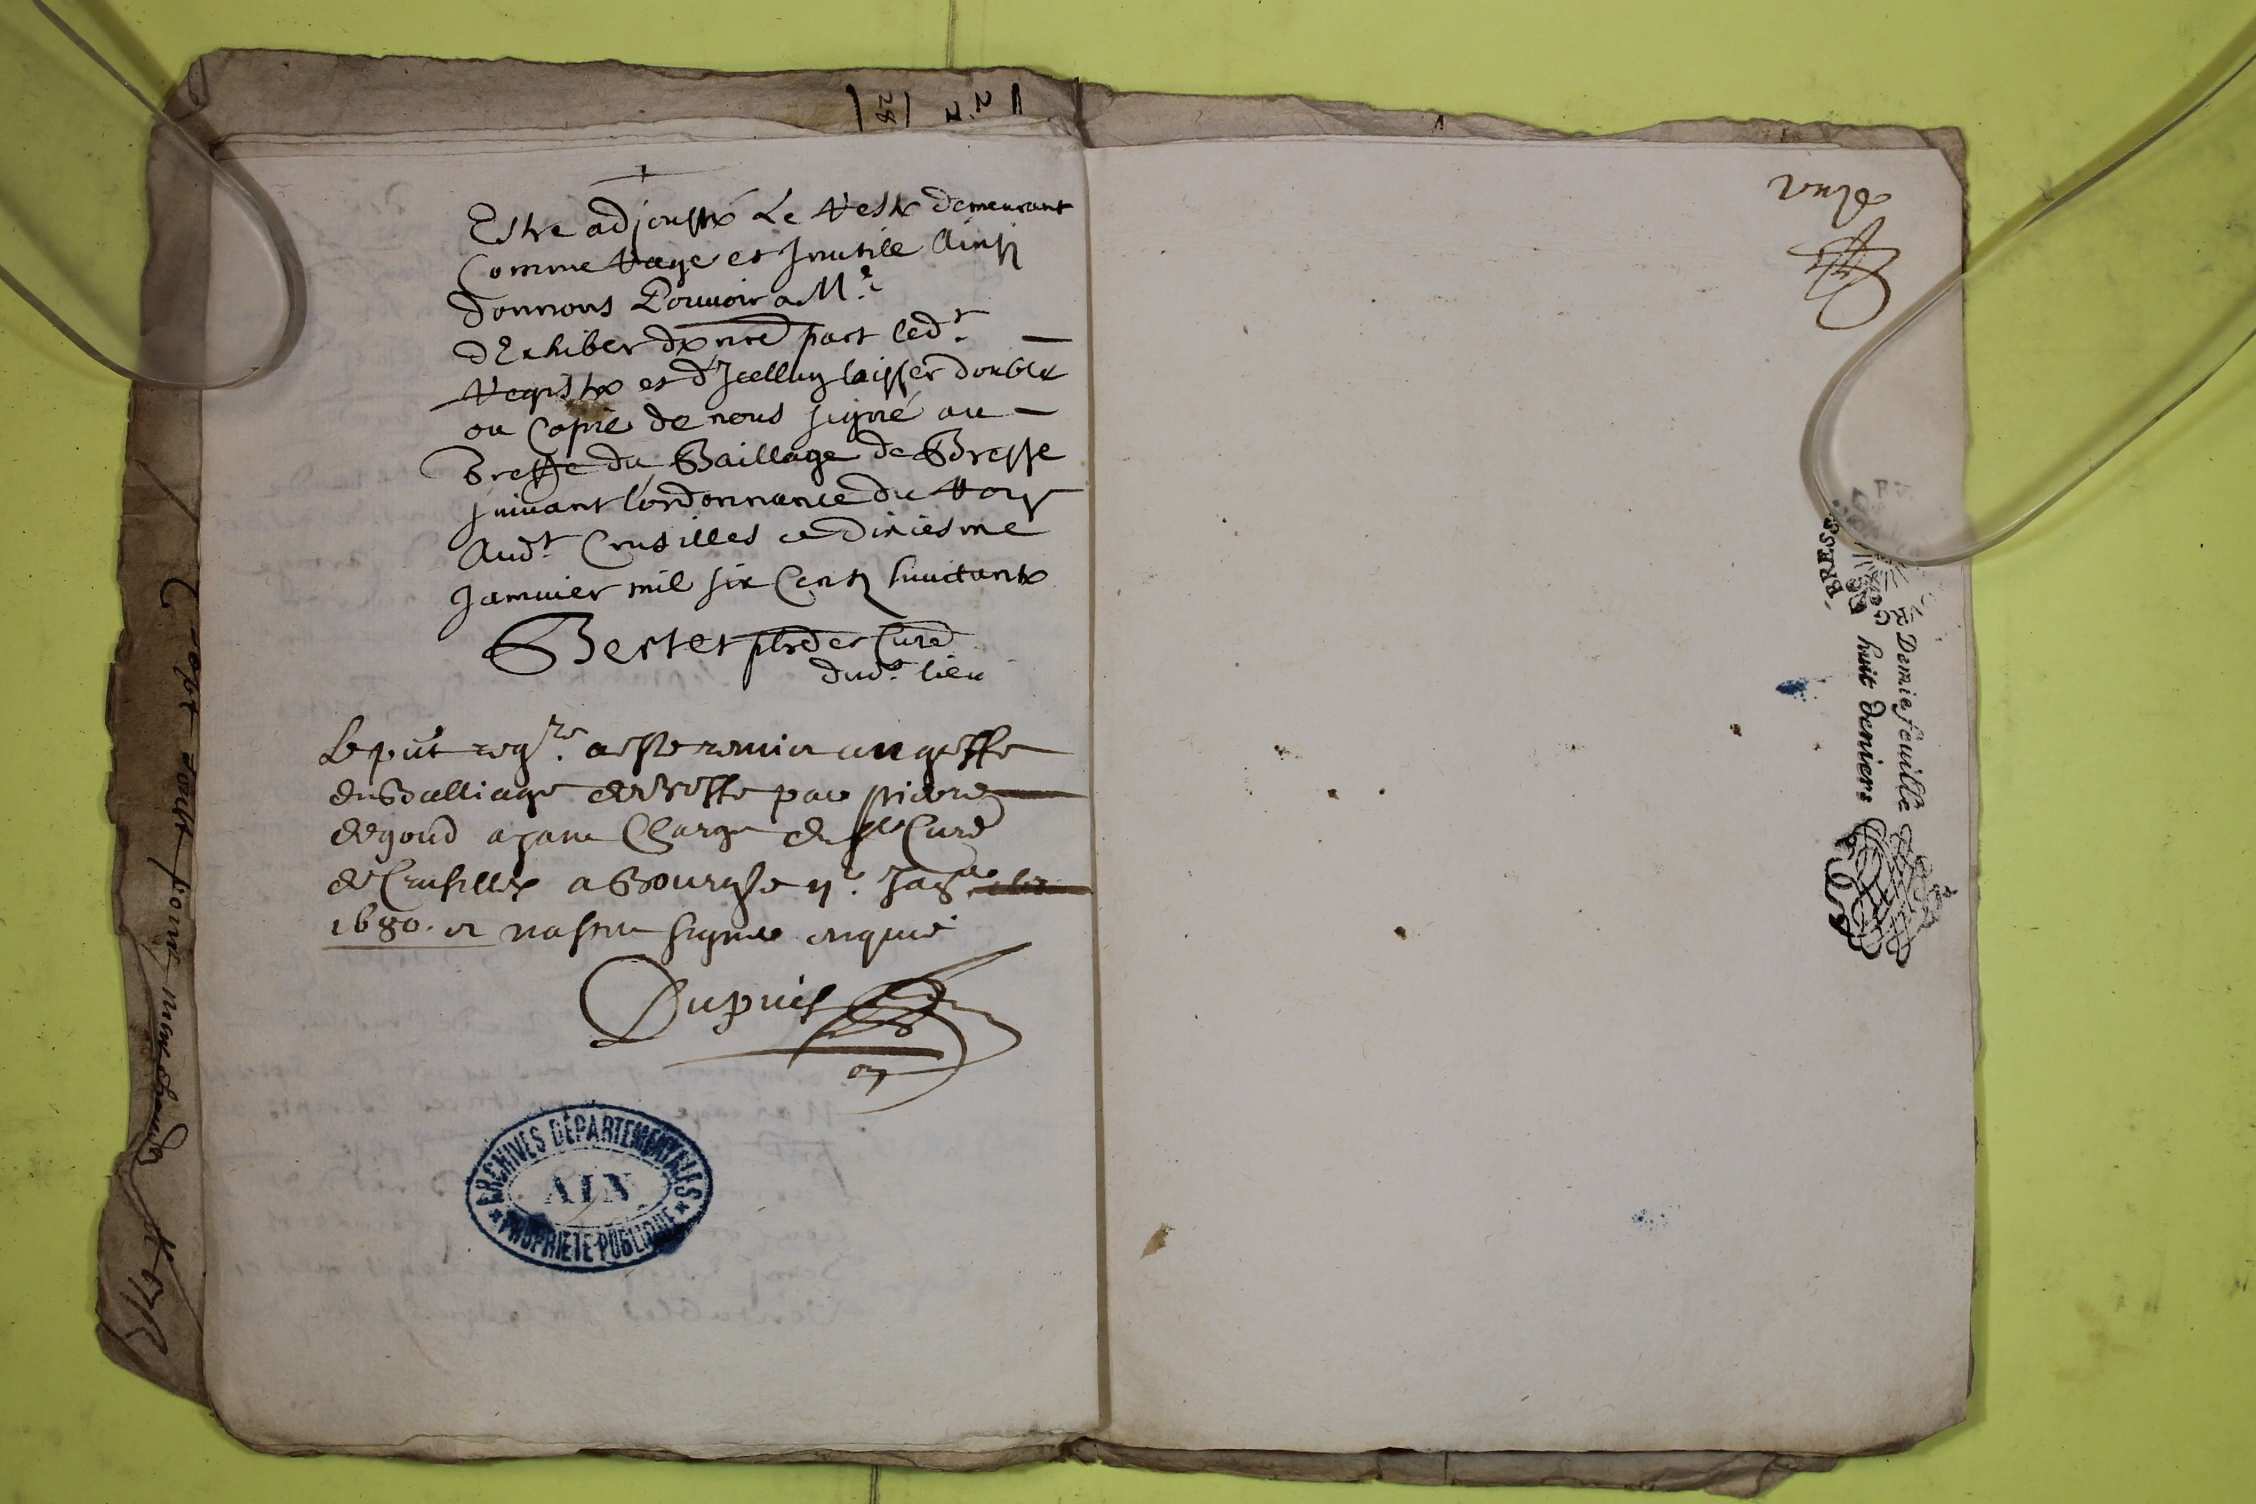 Estre adjousté Le Reste demeurant
Comme Vage et Inutile Ainsi
donnons Pouvoir a Mr
d'Exhiber part led.t
Registre et d'Icelluy laisser double
ou Copie de nous signé au
Greffe du Baillage de Bresse
suivant l'ordonnance du Roy
Aud.t Crusilles ce dixiesme
Janvier mil six Cents huictante
Bertet pbre et Curé
dud.t lieu
Le pnt regre a esté remis au greffe
du Balliage de Bresse par pierre
ayant Charge du sr Curé
de Crusilles a Bourg le
1680. et na sceu signer enquis
Dupuis
ARCHIVES DÉPARTEMENTALES
AIN
PROPRIÉTÉ PUBLIQUE
28
BRESSE
Demie feuille
huit deniers